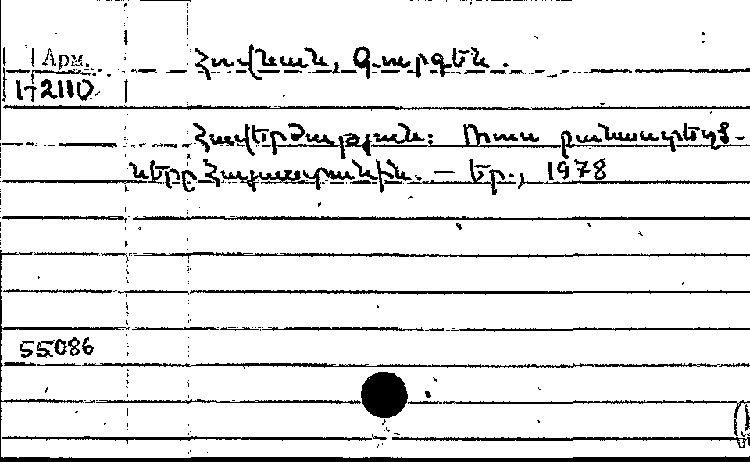 Арм.
1-2110
Հովնան, Գուրգեն.
Հավերժություն: Ռուս բանաստեղծ-
ները Հայաստանին. — Եր., 1978
55086